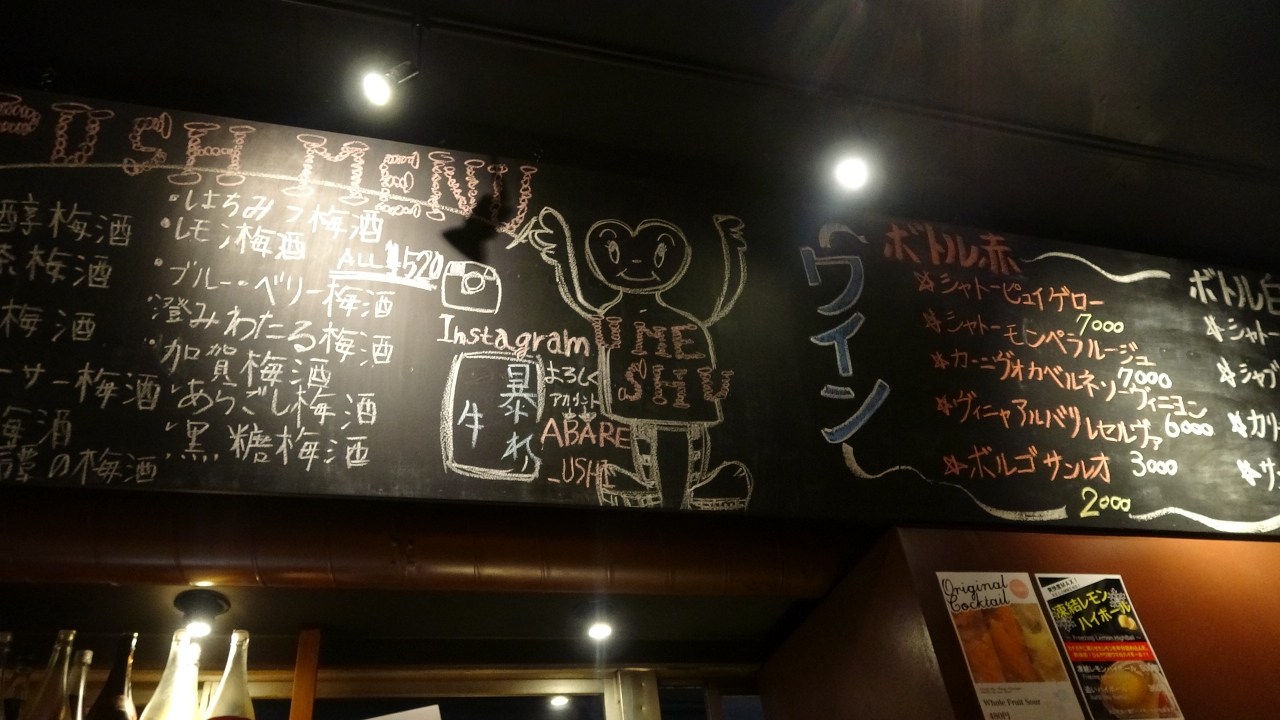 OSH MENU
醇梅酒
茶梅酒
梅酒
ーサー梅酒
梅酒
の梅酒
・はちみつ梅酒
・レモン梅酒
・ブルーベリー梅酒
・澄みわたる梅酒
・加賀梅酒
・あらごし梅酒
・黒糖梅酒
ALL ¥520
Instagram
暴れ
牛
よろしく
アカウント
ABARE
_USHI
UME
SHU
ワイン
ボトル赤
シャトーピュイゲロー
7000
シャトーモンペラルージュ
7000
カーニヴォカベルネソーヴィニヨン
6000
ヴィニャアルバリレセルヴァ
3000
ボルゴサンレオ
2000
ボトル白
シャトー
シャブ
カリ
サ
Original
Cocktail
Whole Fruit Sour
凍結レモン
ハイボール
Freezing Lemon Highball
凍結レモンハイボール